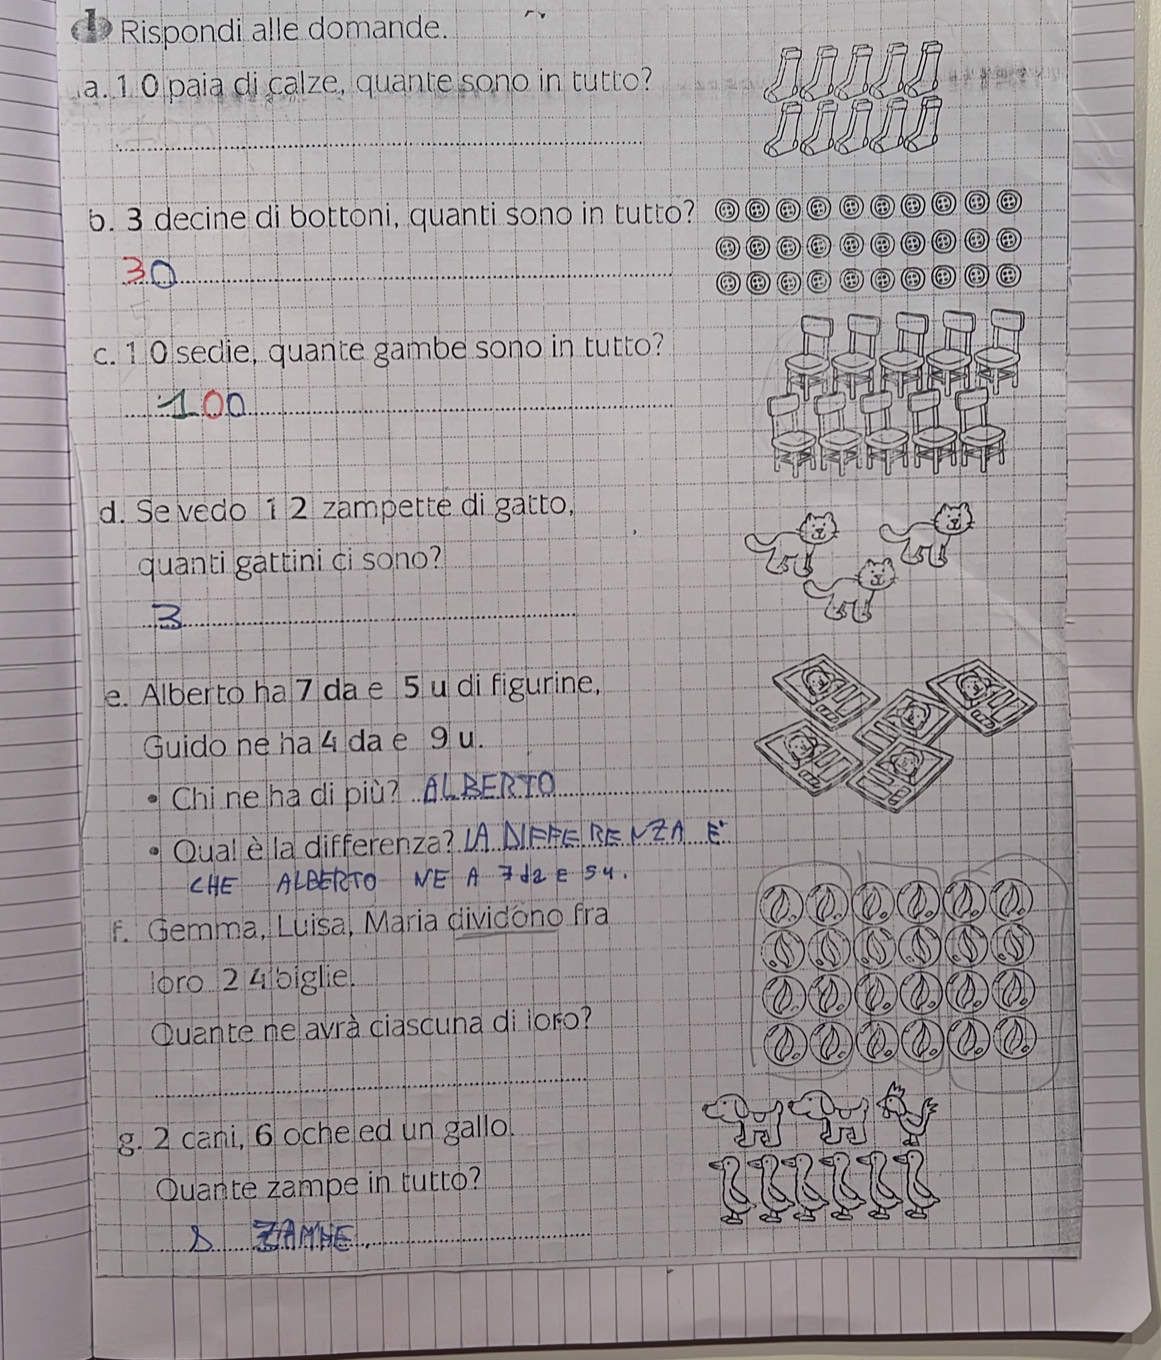 Rispondi alle domande.
a. 10 paia di calze, quante sono in tutto?
b. 3 decine di bottoni, quanti sono in tutto?
30
c. 10 sedie, quante gambe sono in tutto?
100
d. Se vedo 12 zampette di gatto,
quanti gattini ci sono?
3
e. Alberto ha 7 da e 5 u di figurine,
Guido ne ha 4 da e 9 u.
• Chi ne ha di più? ALBERTO
• Qual è la differenza? LA DIFFERENZA E'
CHE ALBERTO NE A 7 da E 5 u.
f. Gemma, Luisa, Maria dividono fra
loro 24 biglie.
Quante ne avrà ciascuna di loro?
g. 2 cani, 6 oche ed un gallo.
Quante zampe in tutto?